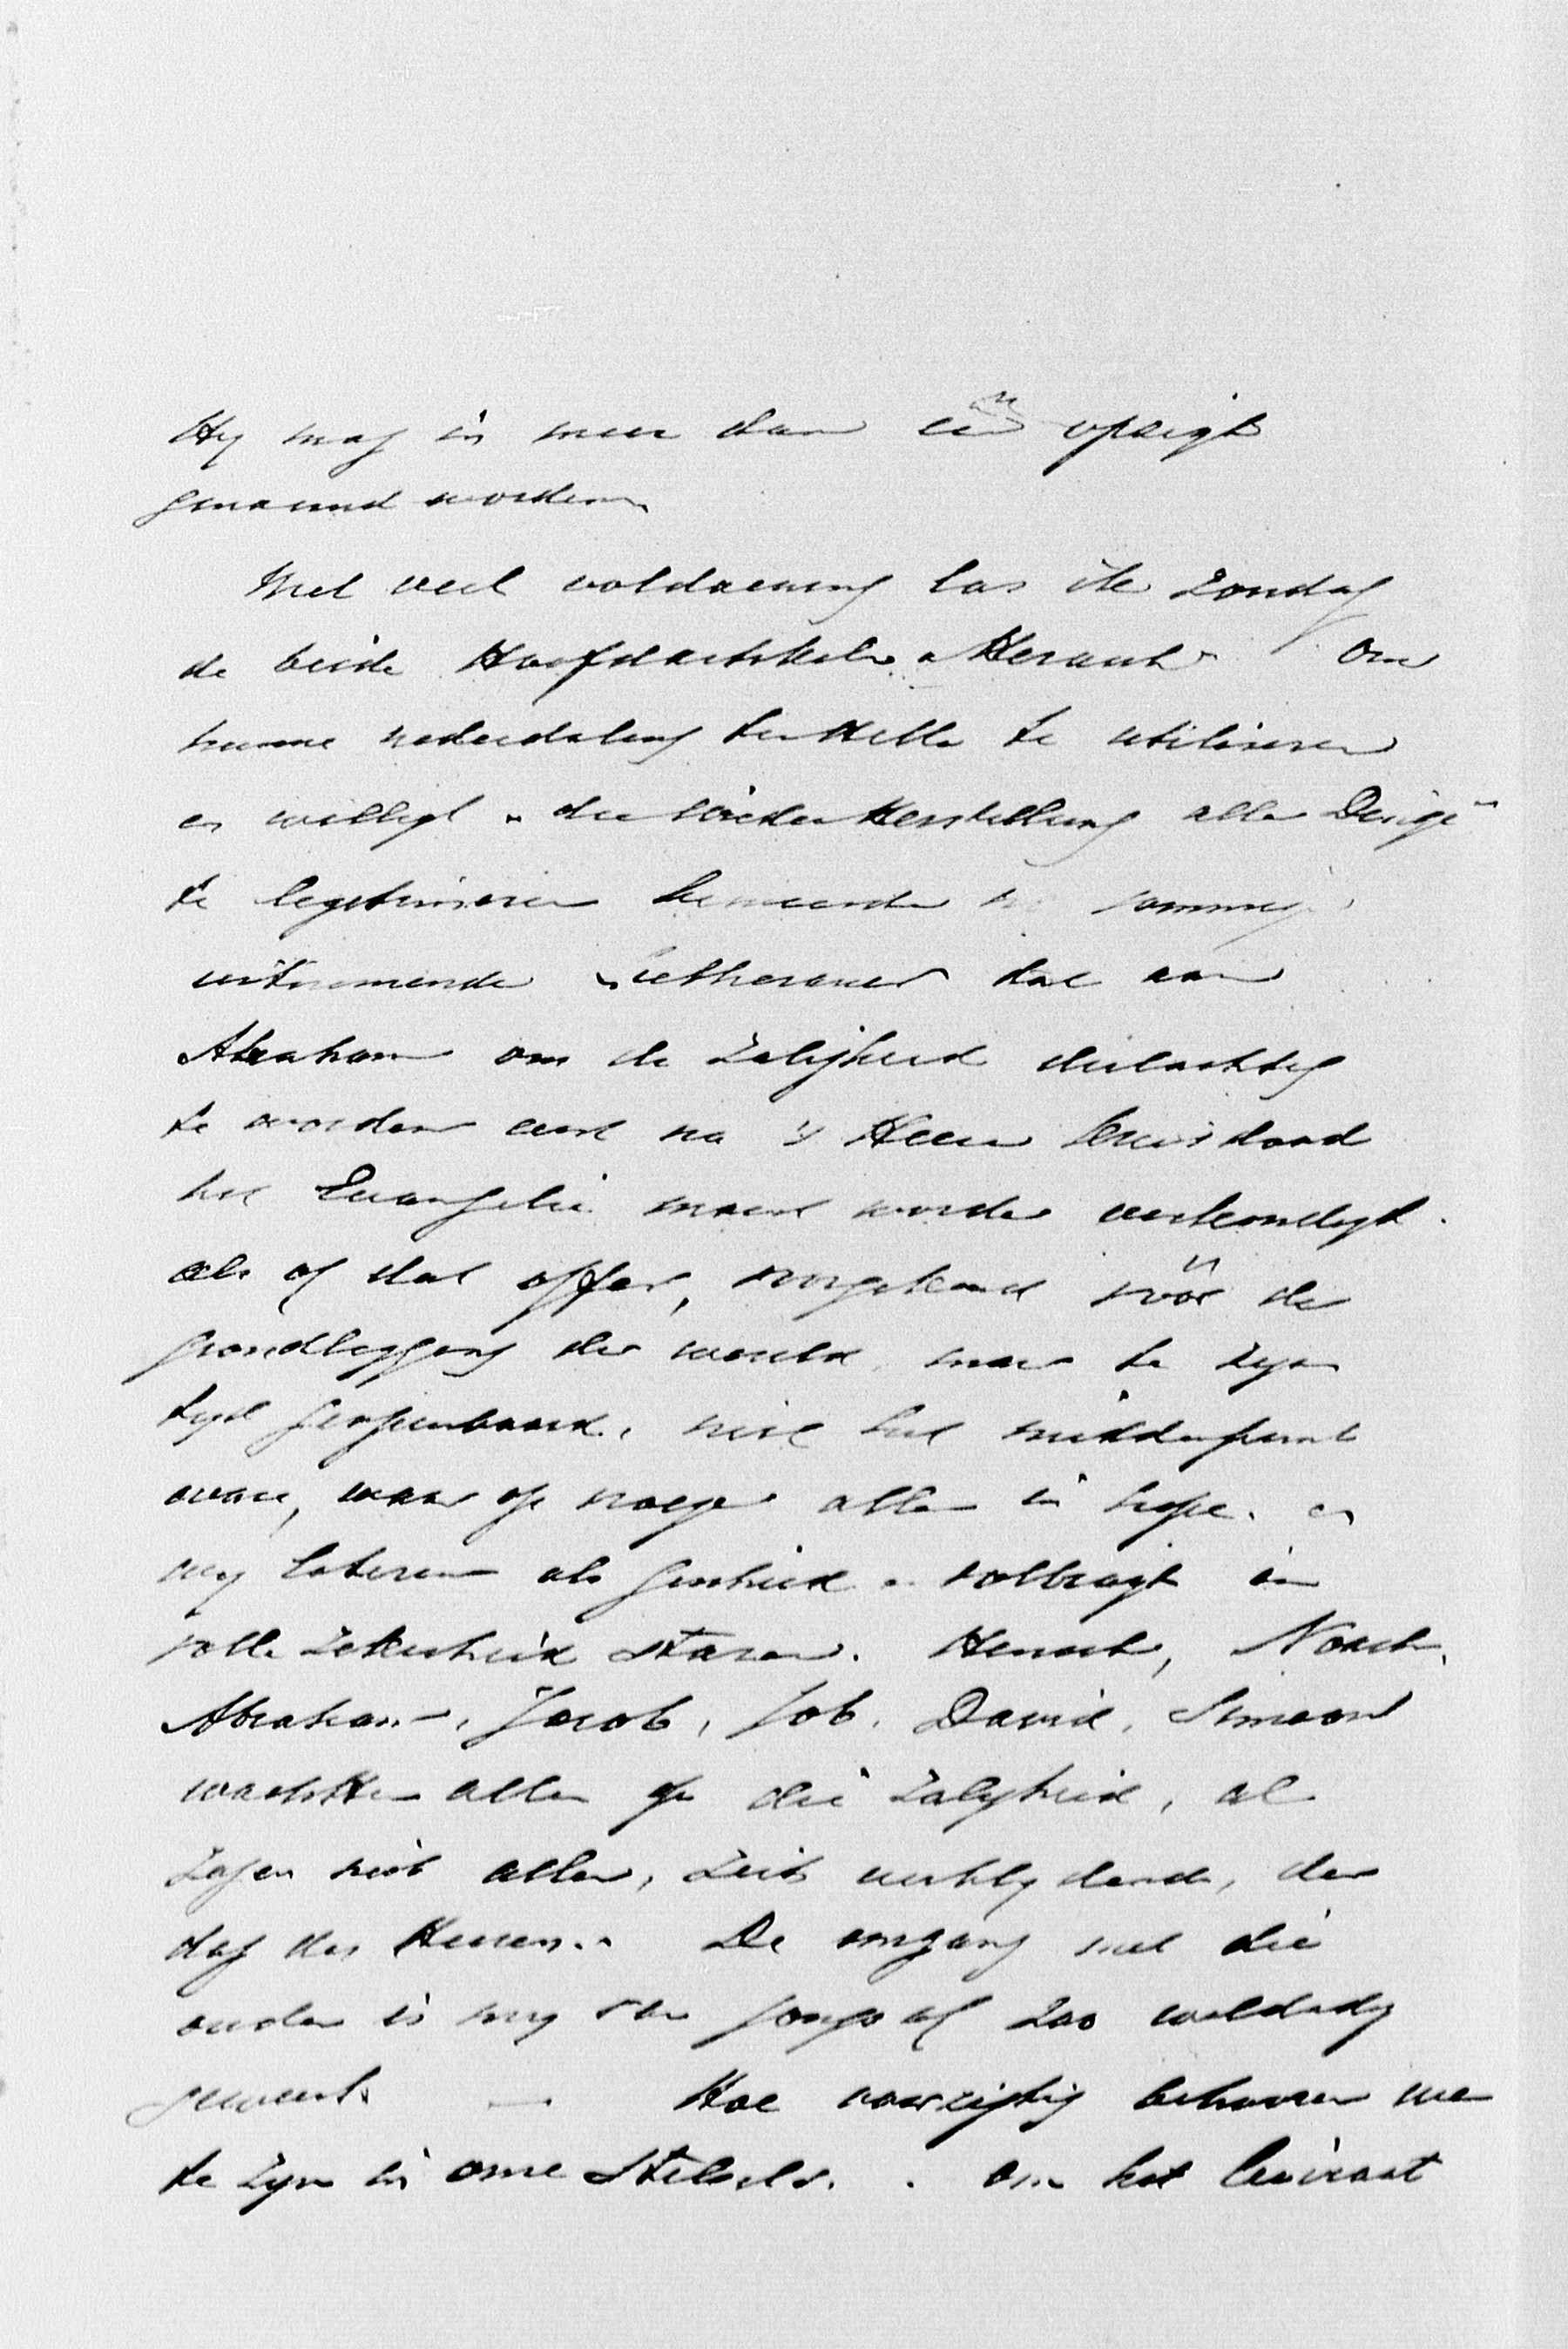 Hy mag in meer dan één opzigt
genoemd worden.
Met veel voldoening las ik Zondag
de beide Hoofdartikelen "Heraut". Om
hunne nederdaling ter Helle te utiliseren
en welligt "die Wiederherstellung aller Dinge"
te legitimeren beweerden sommige
uitnemende Lutheranen dat aan
Abraham om de Zaligheid deelachtig
te worden eerst na 's Heeren kruisdood
het Evangelie moest worden verkondigd.
als of dat offer, voorgekend vóór de
grondlegging der wereld, maar te zyner
tyd geopenbaard, niet het middenpunt
ware, waar op vroeger allen in hope, en
wy lateren als geschied en volbragt in
volle Zekerheid staren. Henoch, Noach,
Abraham, Jacob, Job, David, Simeon
wachtten allen op die Zaligheid, al
Zagen niet allen, Zich verblydende, den
dag des Heeren. De omgang met die
ouden is my van jongs af zoo weldadig
geweest. — Hoe voorzigtig behooren we
te zyn in onze Stelsels. om het